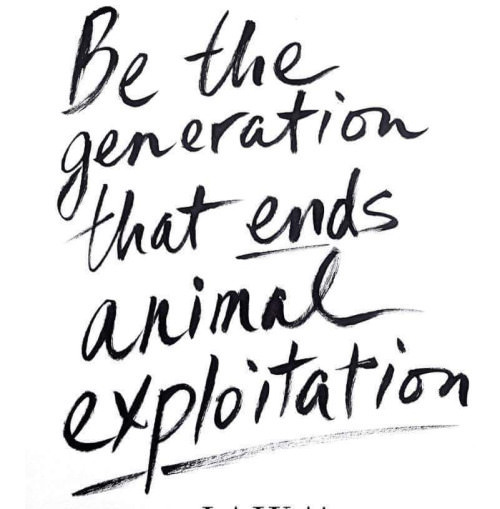 Be the
generation
that ends
animal
exploitation